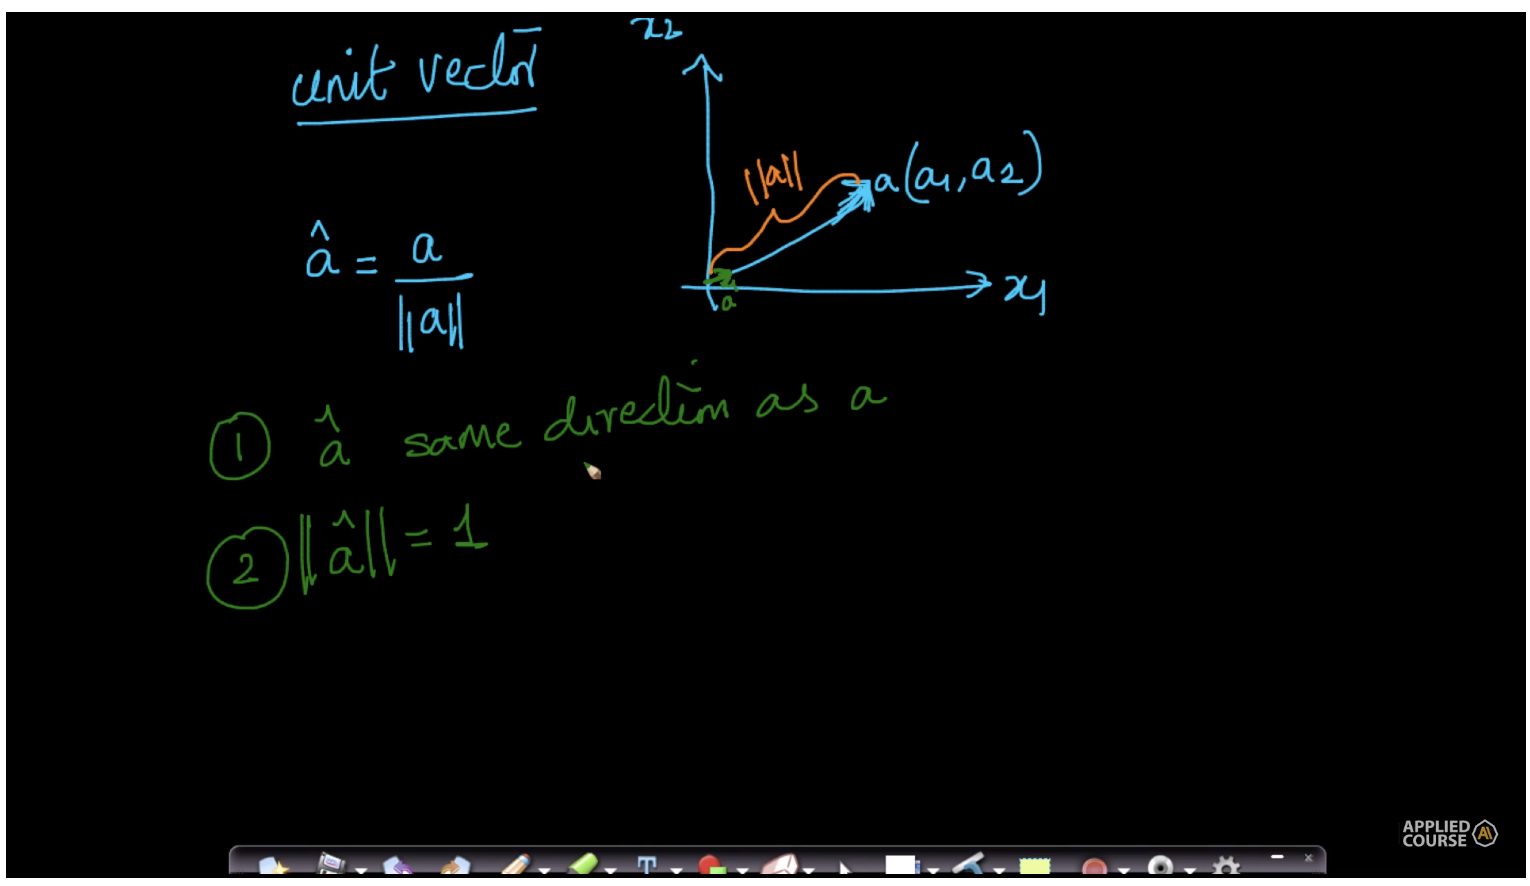 unit vector
x2
||a||
a(a1, a2)
â = a / ||a||
x1
â
① â same direction as a
② ||â|| = 1
T
APPLIED
COURSE